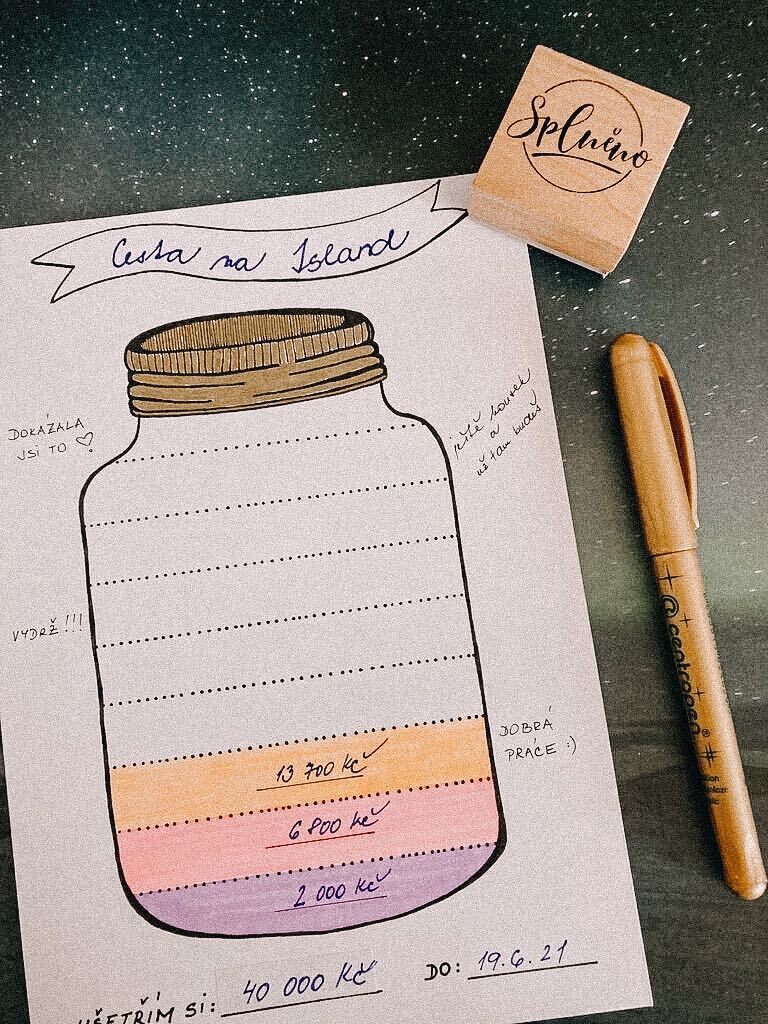 Splněno
Cesta na Island
DOKÁZALA
JSI TO ♡
ještě kousek
a
už tam budeš
VYDRŽ!!!
DOBRÁ
PRÁCE :)
13 700 Kč
6 800 Kč
2 000 Kč
UŠETŘÍM SI: 40 000 Kč
DO: 19.6.21
@centropen®
#